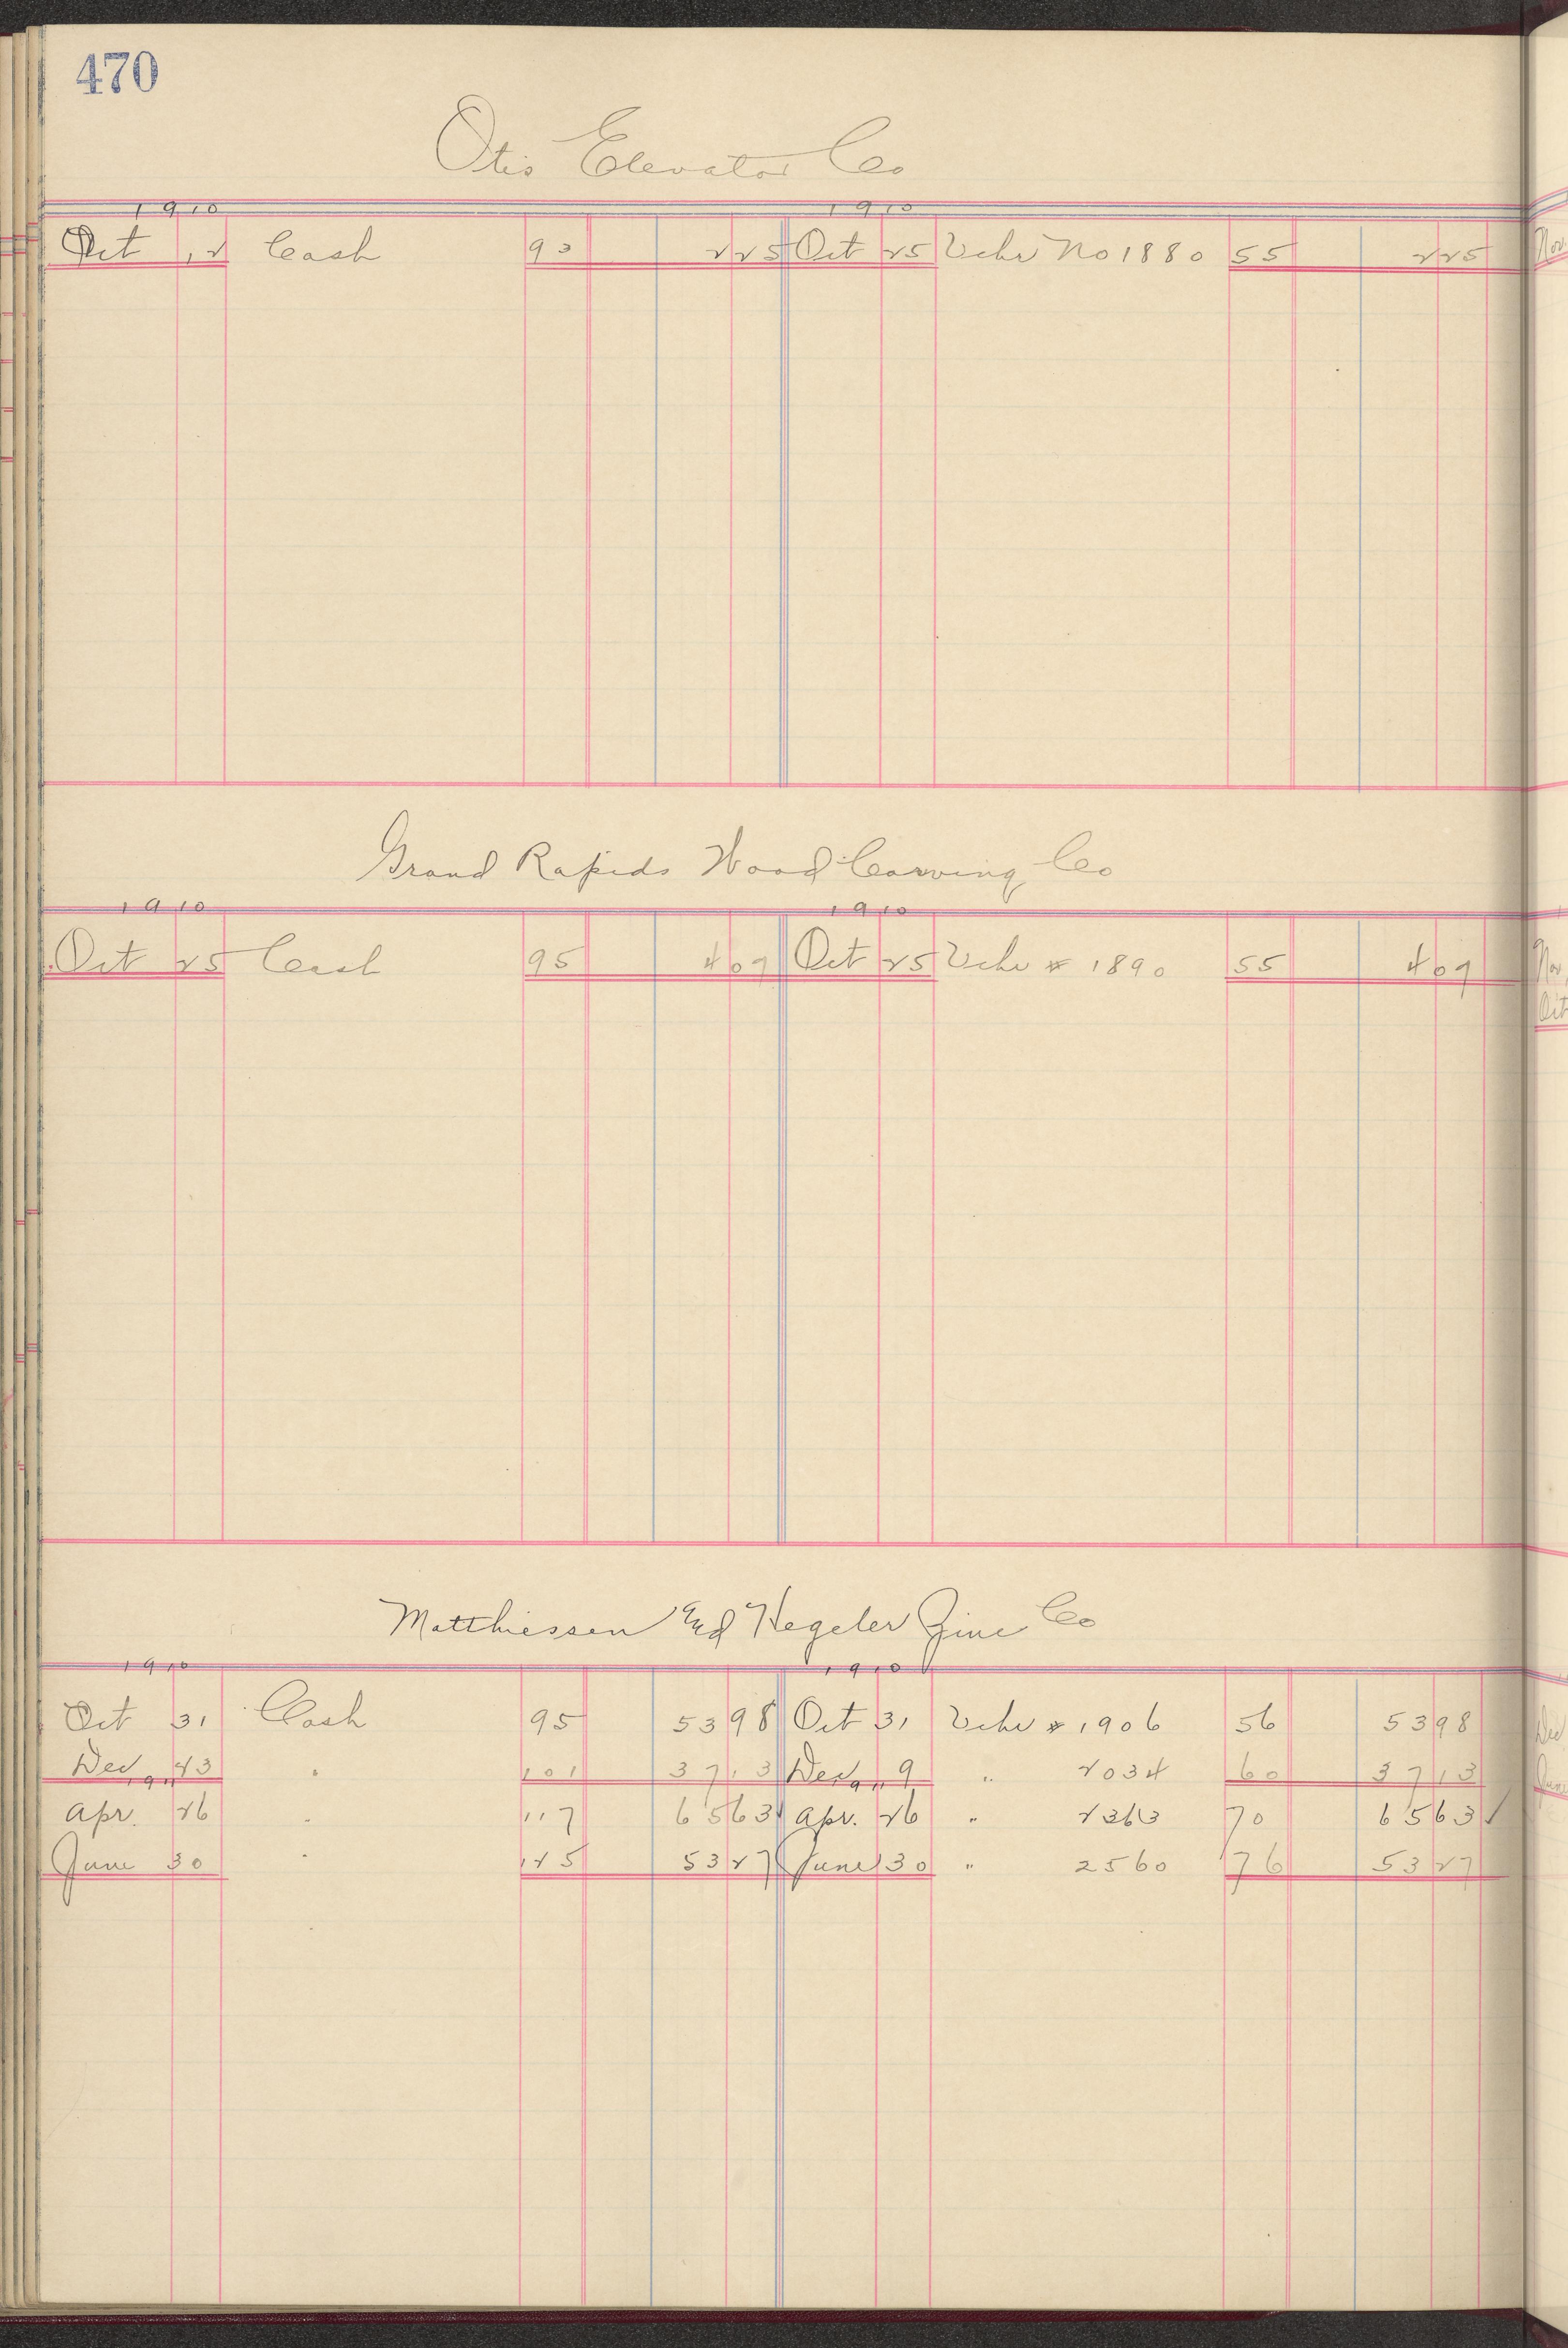 470
Otis Elevator Co
1910 1910
Oct 12 Cash 90 2 25 Oct 25 Vchr No 1880 55 2 25
Grand Rapids Wood Carving Co
1910 1910
Oct 25 Cash 95 4 09 Oct 25 Vchr # 1890 55 4 09
Matthiessen and Hegeler Zinc Co
1910 1910
Oct 31 Cash 95 53 98 Oct 31 Vchr # 1906 56 53 98
Dec 23 " 101 37 13 Dec 9 " 2034 60 37 13
1911 1911
Apr. 26 " 117 65 63 Apr. 26 " 2363 70 65 63 ✓
June 30 " 125 53 27 June 30 " 2560 76 53 27
Nov
Nov
Oct
Dec
June